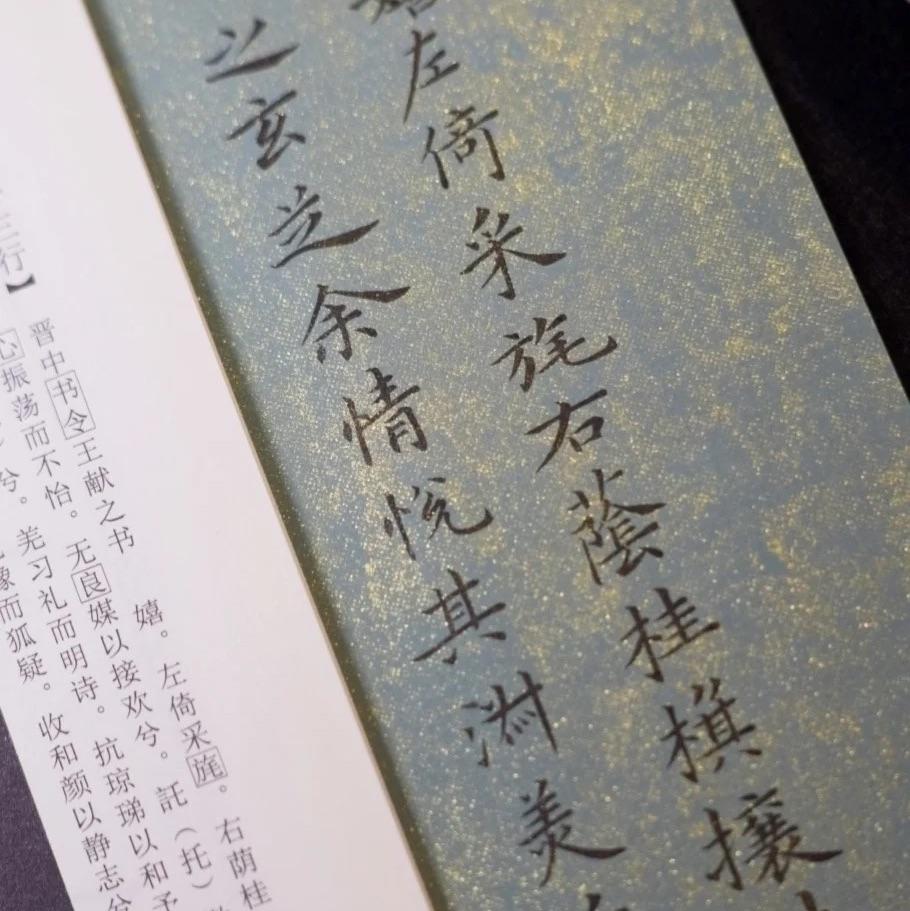 左倚采旄右蔭桂棋攘
之玄芝余情悦其淑美
三行】
晋中书令王献之书 嬉。左倚采旄。右荫桂
心振荡而不怡。无良媒以接欢兮。託（托）
兮。羌习礼而明诗。抗琼珶以和予
豫而狐疑。收和颜以静志兮